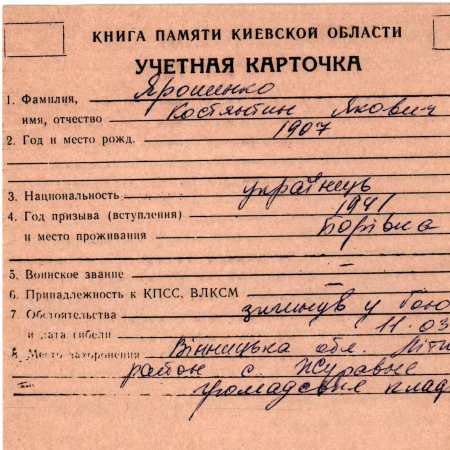 КНИГА ПАМЯТИ КИЕВСКОЙ ОБЛАСТИ
УЧЕТНАЯ КАРТОЧКА
1. Фамилия, Ярошенко
имя, отчество Костянтин Якович
2. Год и место рожд. 1907
3. Национальность українець
4. Год призыва (вступления) 1941
и место проживания Борівка
5. Воинское звание –
6. Принадлежность к КПСС, ВЛКСМ –
7. Обстоятельства загинув у бою
и дата гибели 11.03
8. Место захоронения Вінницька обл. Літи
район с. Журавне
громадське клад